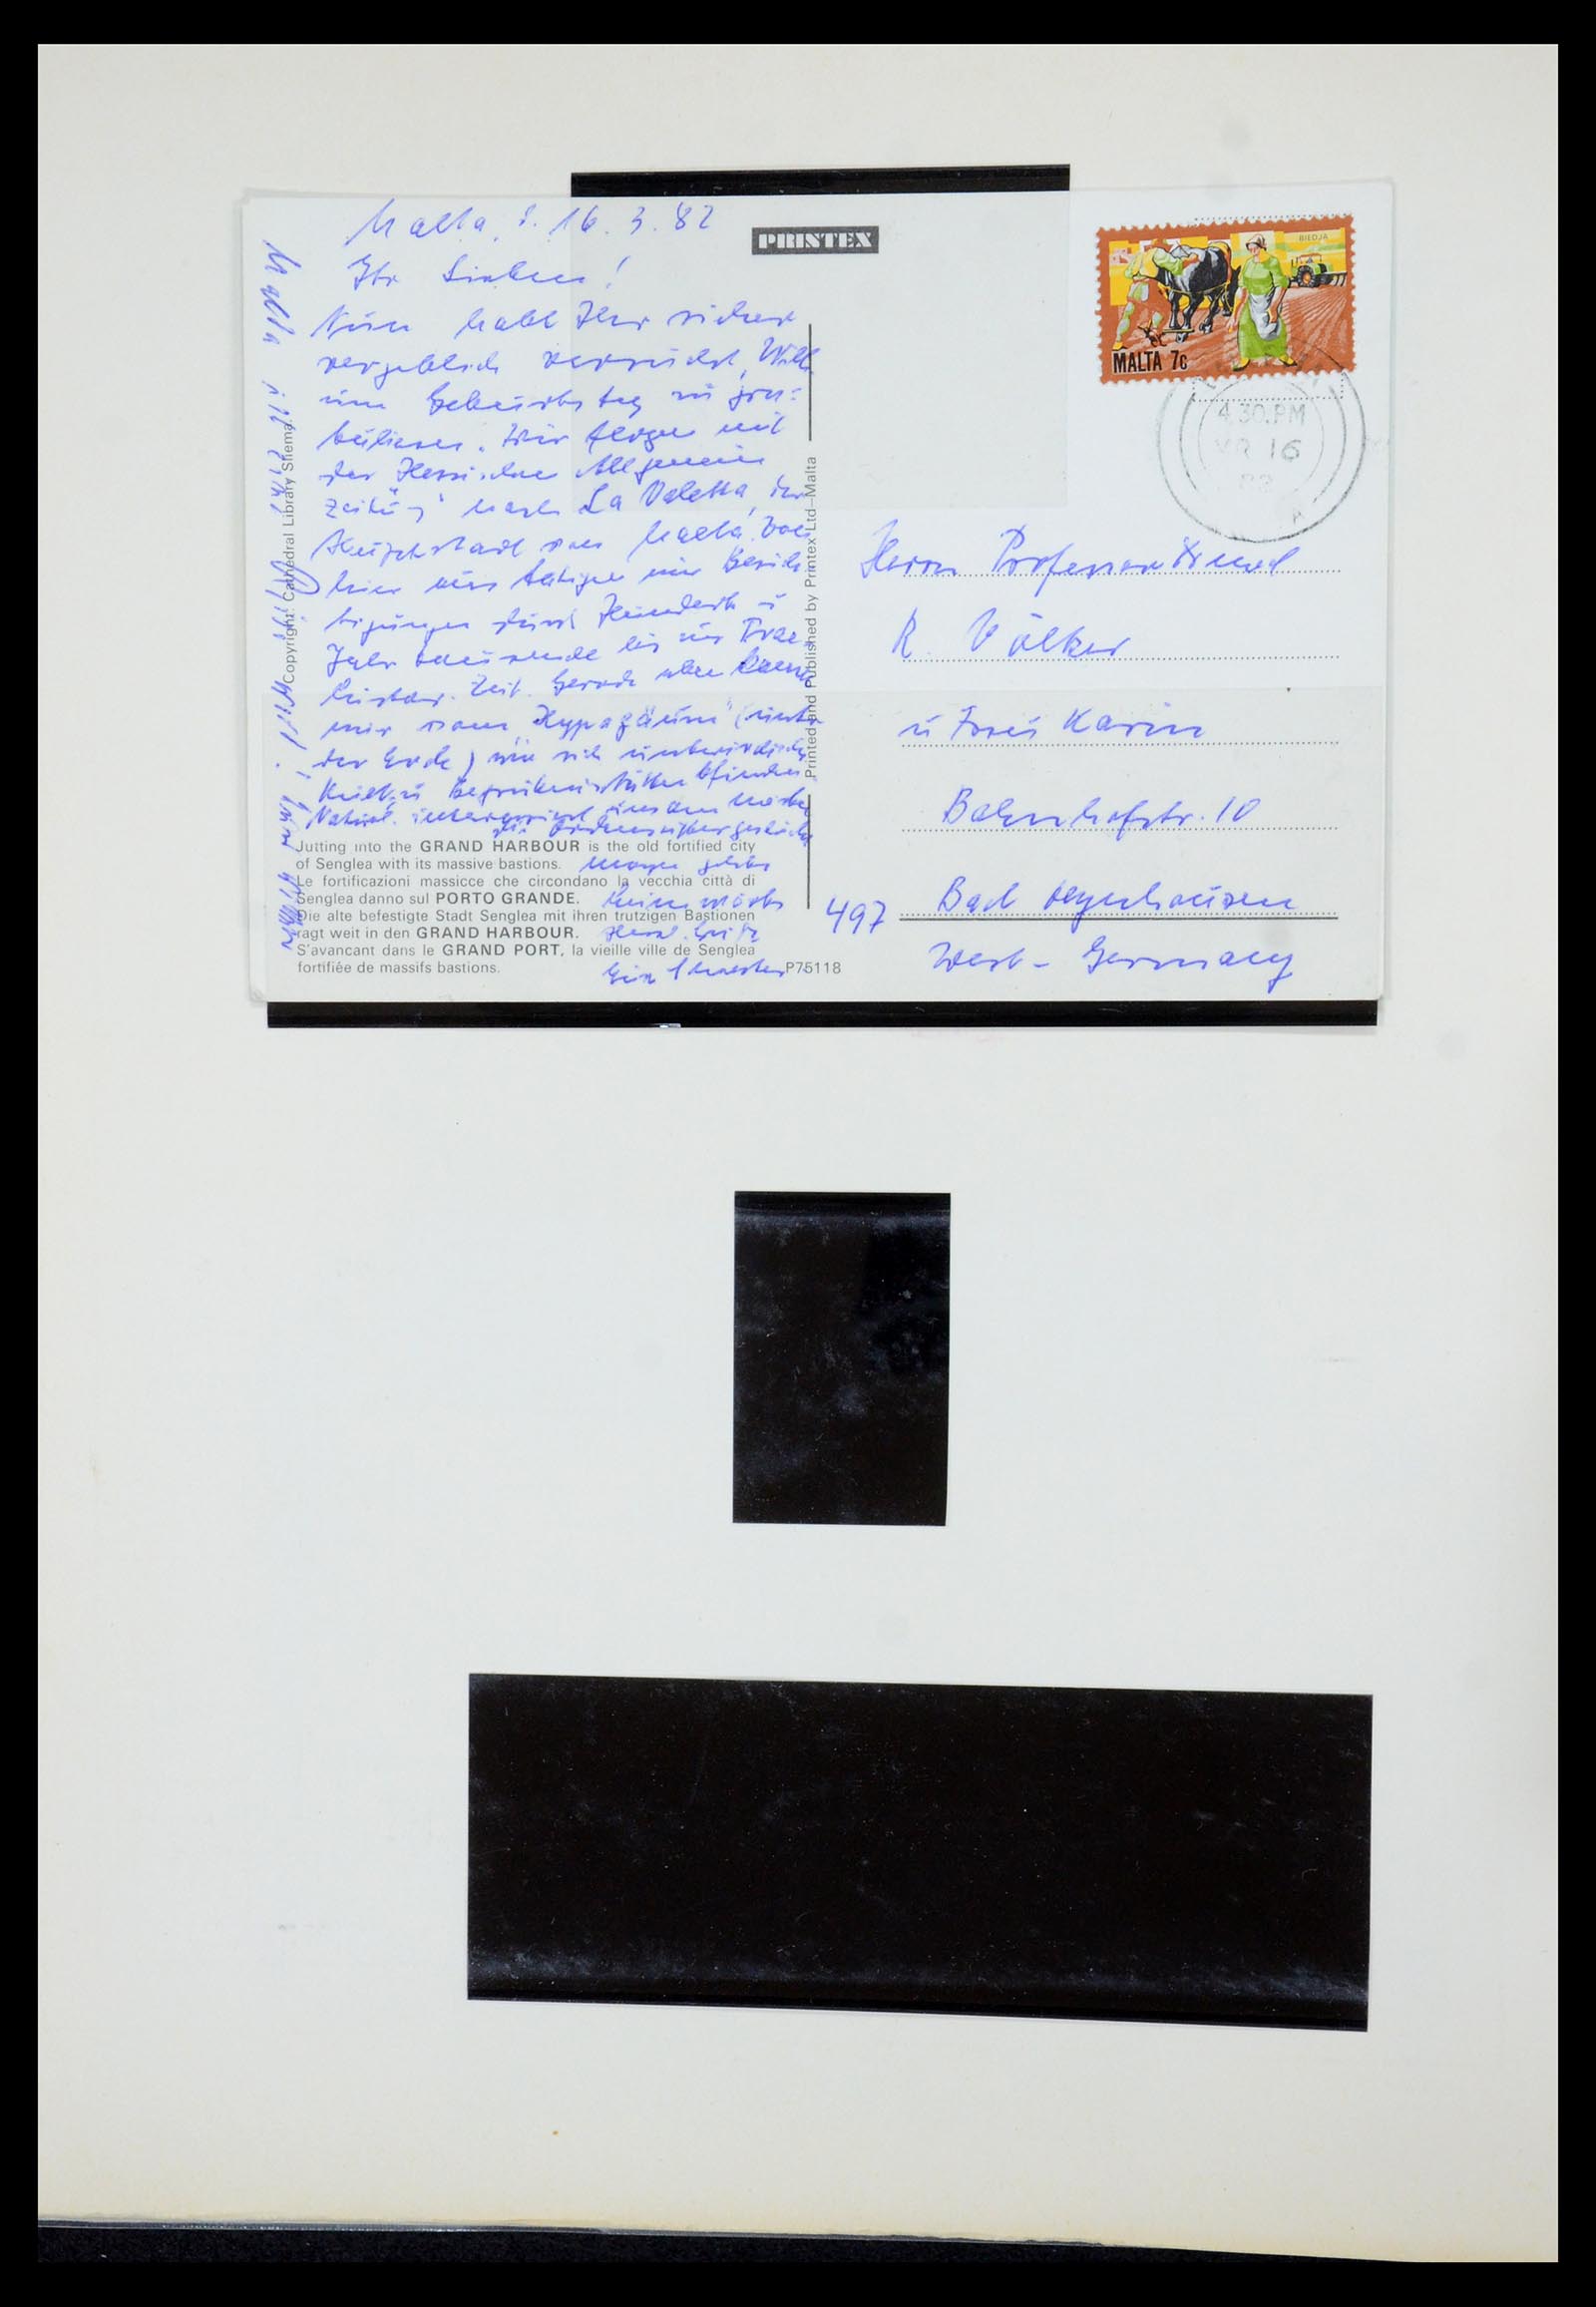 Malta, d. 16.3.82
Ihr Lieben!
Nun habt Ihr sicher
vergeblich versucht, Willi
zum Geburtstag zu gra-
tulieren. Wir flogen mit
der "Hessischen Allgemeinen
Zeitung" nach La Valetta, der
Hauptstadt von Malta. Von
hier aus tätigen wir Besich-
tigungen durch Hunderte u
Jahrtausende bis zur Prae
histor. Zeit. Gerade eben kamen
wir vom "Hypogäum" (unter
der Erde) wo sich unterirdische
Kult u Begräbnisstätten befinden
Natürl. interessiert uns am meisten
die Ordensrittergeschichte
Morgen geht es
Herzl. Grüße
Eva
Malta
PRINTEX
Copyright: Cathedral Library Sliema.
Printed and Published by Printex Ltd–Malta
Jutting into the GRAND HARBOUR is the old fortified city
of Senglea with its massive bastions.
Le fortificazioni massicce che circondano la vecchia città di
Senglea danno sul PORTO GRANDE.
Die alte befestigte Stadt Senglea mit ihren trutzigen Bastionen
ragt weit in den GRAND HARBOUR.
S'avancant dans le GRAND PORT, la vieille ville de Senglea
fortifiée de massifs bastions.
P75118
BIEDJA
MALTA 7c
4.30.PM
MR 16
82
Herrn Professor
R. Völker
u Frau Karin
Bahnhofstr. 10
497 Bad Oeynhausen
West-Germany